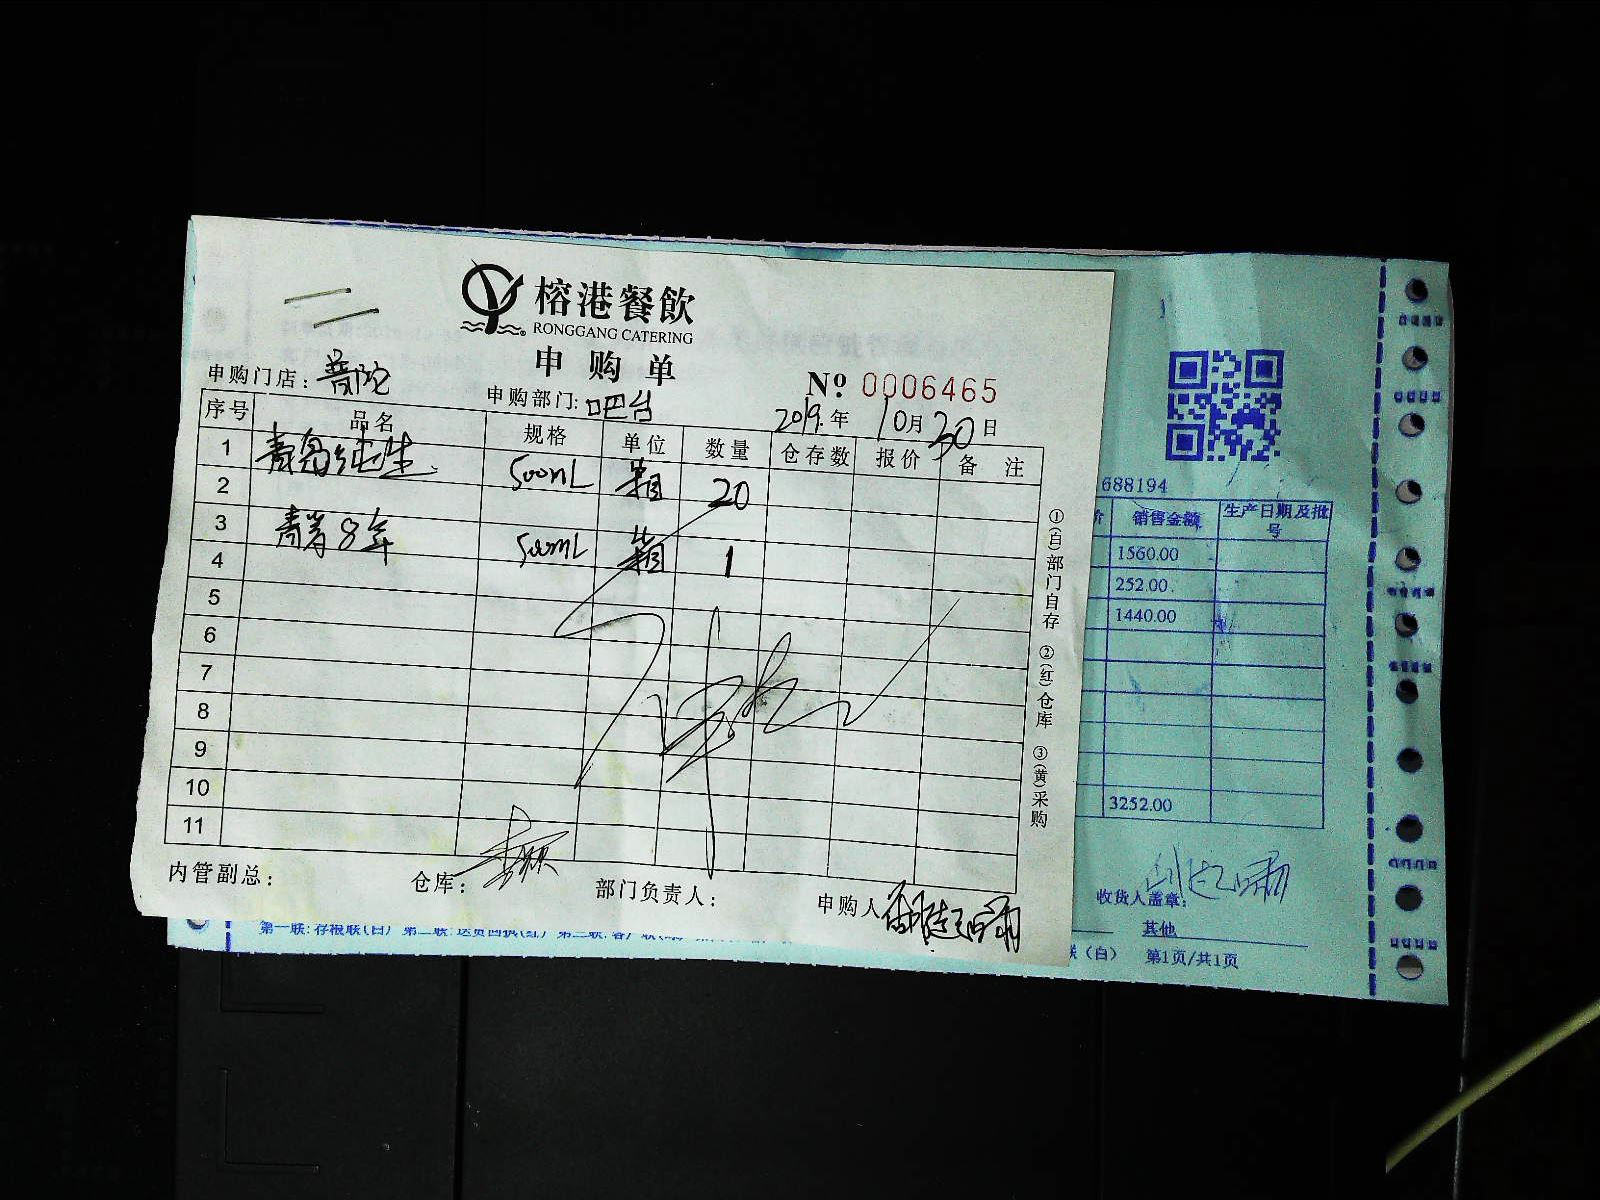 榕港餐飲
RONGGANG CATERING
申购单
Nº 0006465
申购门店：普陀 申购部门：吧台 2019.年 10月30日
序号 品名 规格 单位 数量 仓存数 报价 备注
1 青岛纯生 500mL 箱 20
2
3 青岑8年 500mL 箱 1
4
5
6
7
8
9
10
11
①(白)部门自存 ②(红)仓库 ③(黄)采购
内管副总： 仓库： 部门负责人： 申购人
688194
价 销售金额 生产日期及批号
1560.00
252.00
1440.00
3252.00
收货人盖章：
其他
第一联：存根联(白) 第二联：送货回执(红) 第三联：客户联
联（白） 第1页/共1页